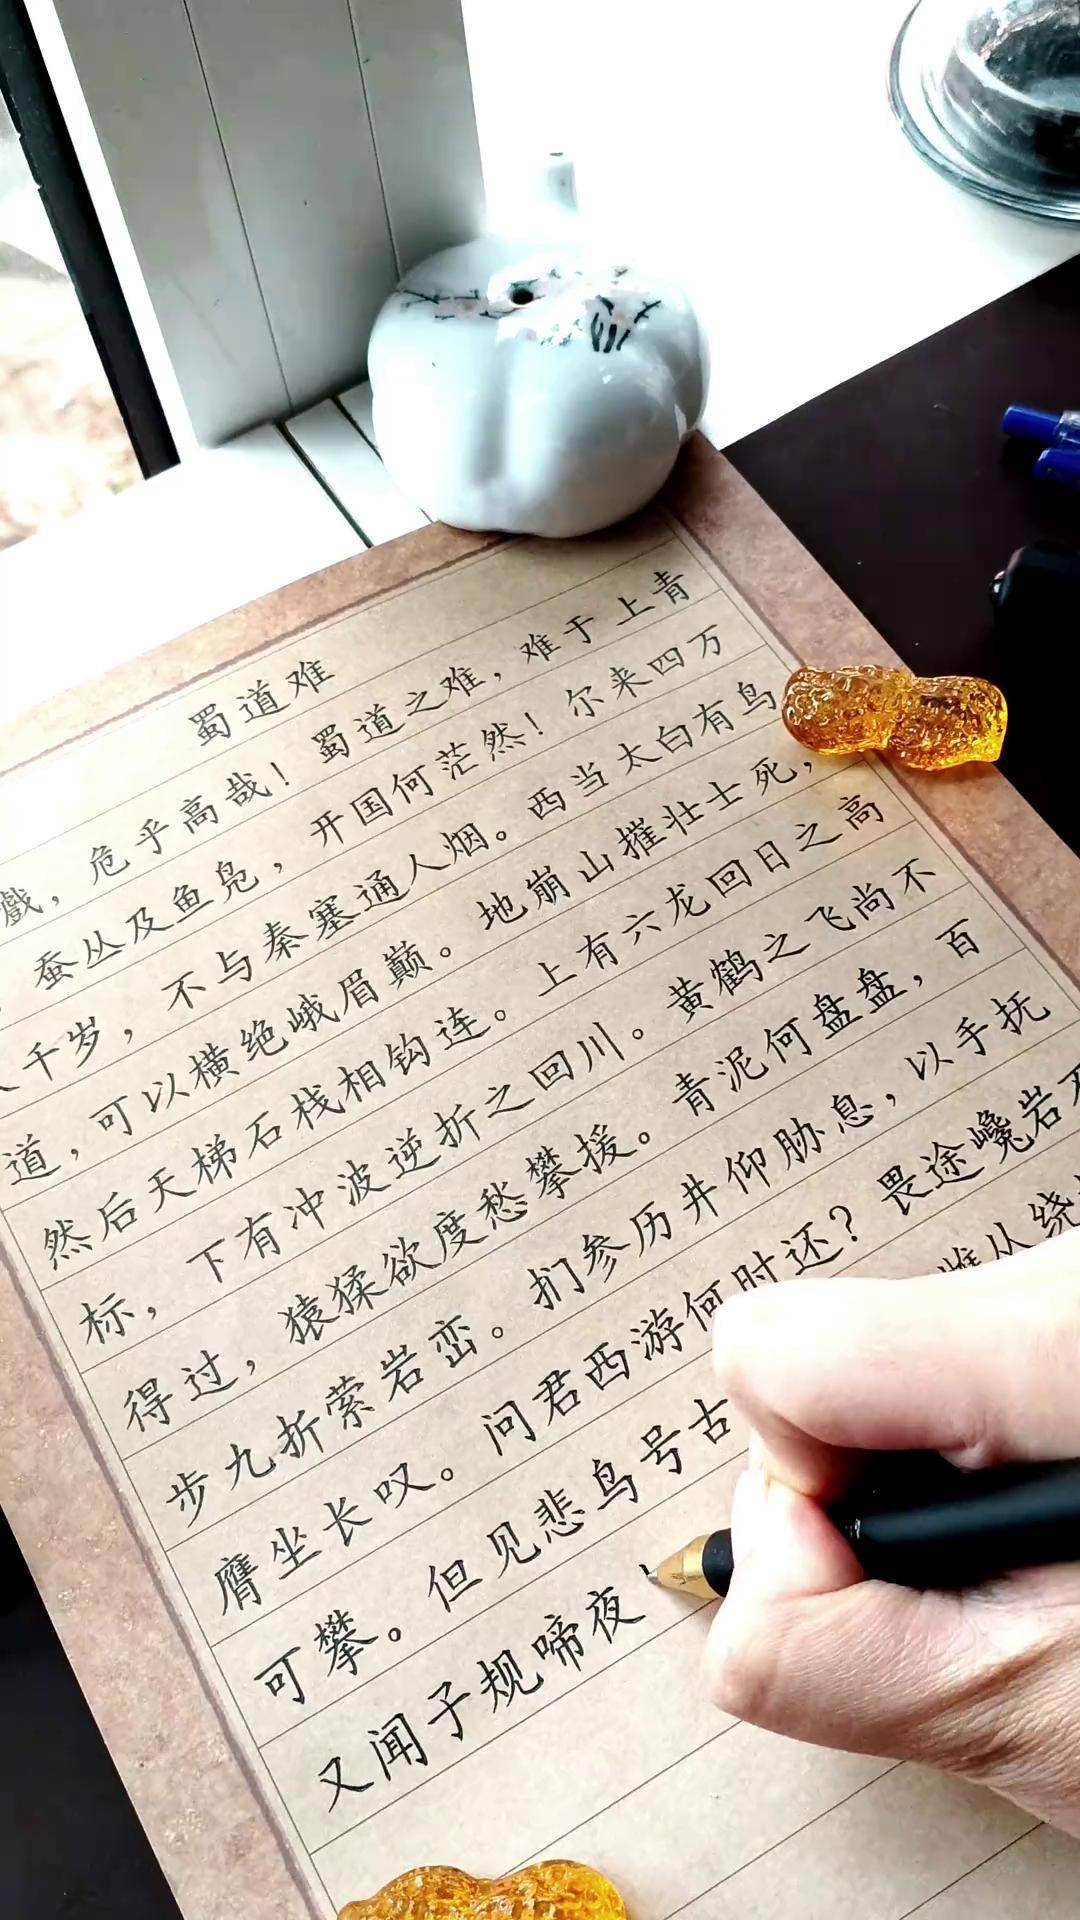 蜀道难
，危乎高哉！蜀道之难，难于上青
蚕丛及鱼凫，开国何茫然！尔来四万
千岁，不与秦塞通人烟。西当太白有鸟
道，可以横绝峨眉巅。地崩山摧壮士死，
然后天梯石栈相钩连。上有六龙回日之高
标，下有冲波逆折之回川。黄鹤之飞尚不
得过，猿猱欲度愁攀援。青泥何盘盘，百
步九折萦岩峦。扪参历井仰胁息，以手抚
膺坐长叹。问君西游何时还？畏途巉岩不
可攀。但见悲鸟号古 从绕
又闻子规啼夜